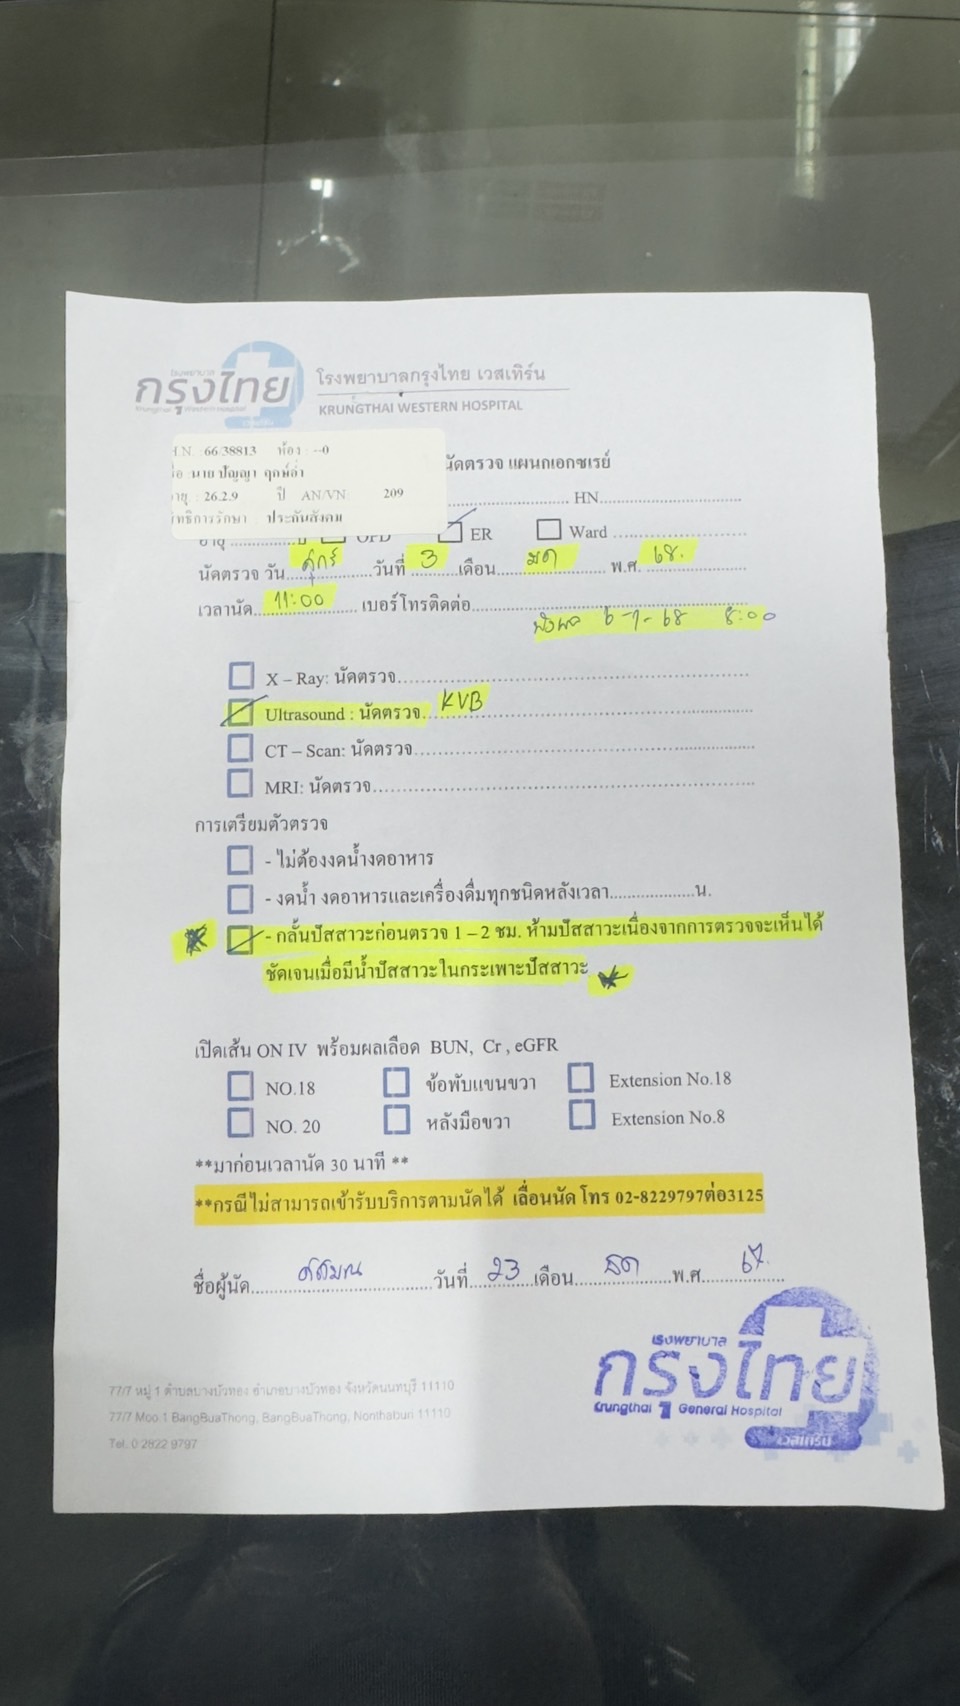 โรงพยาบาล
กรุงไทย
Krungthai Western Hospital
เวสเทิร์น
โรงพยาบาลกรุงไทย เวสเทิร์น
KRUNGTHAI WESTERN HOSPITAL
H.N. : 66/38813 ห้อง : --0
ชื่อ :นาย ปัญญา ฤกษ์อ่ำ
อายุ : 26.2.9 ปี AN/VN: 209
สิทธิการรักษา : ประกันสังคม
นัดตรวจ แผนกเอกซเรย์
HN
อายุ ปี OPD ER Ward
นัดตรวจ วัน ศุกร์ วันที่ 3 เดือน มค พ.ศ. 68.
เวลานัด 11:00 เบอร์โทรติดต่อ
ฟังผล 6-1-68 8:00
X – Ray: นัดตรวจ
Ultrasound : นัดตรวจ KVB
CT – Scan: นัดตรวจ
MRI: นัดตรวจ
การเตรียมตัวตรวจ
- ไม่ต้องงดน้ำงดอาหาร
- งดน้ำ งดอาหารและเครื่องดื่มทุกชนิดหลังเวลา น.
- กลั้นปัสสาวะก่อนตรวจ 1 – 2 ชม. ห้ามปัสสาวะเนื่องจากการตรวจจะเห็นได้
ชัดเจนเมื่อมีน้ำปัสสาวะในกระเพาะปัสสาวะ
เปิดเส้น ON IV พร้อมผลเลือด BUN, Cr , eGFR
NO.18 ข้อพับแขนขวา Extension No.18
NO. 20 หลังมือขวา Extension No.8
**มาก่อนเวลานัด 30 นาที **
**กรณีไม่สามารถเข้ารับบริการตามนัดได้ เลื่อนนัด โทร 02-8229797ต่อ3125
ชื่อผู้นัด วันที่ 23 เดือน ธค พ.ศ 67.
โรงพยาบาล
กรุงไทย
Krungthai General Hospital
เวสเทิร์น
77/7 หมู่ 1 ตำบลบางบัวทอง อำเภอบางบัวทอง จังหวัดนนทบุรี 11110
77/7 Moo 1 BangBuaThong, BangBuaThong, Nonthaburi 11110
Tel. 0 2822 9797